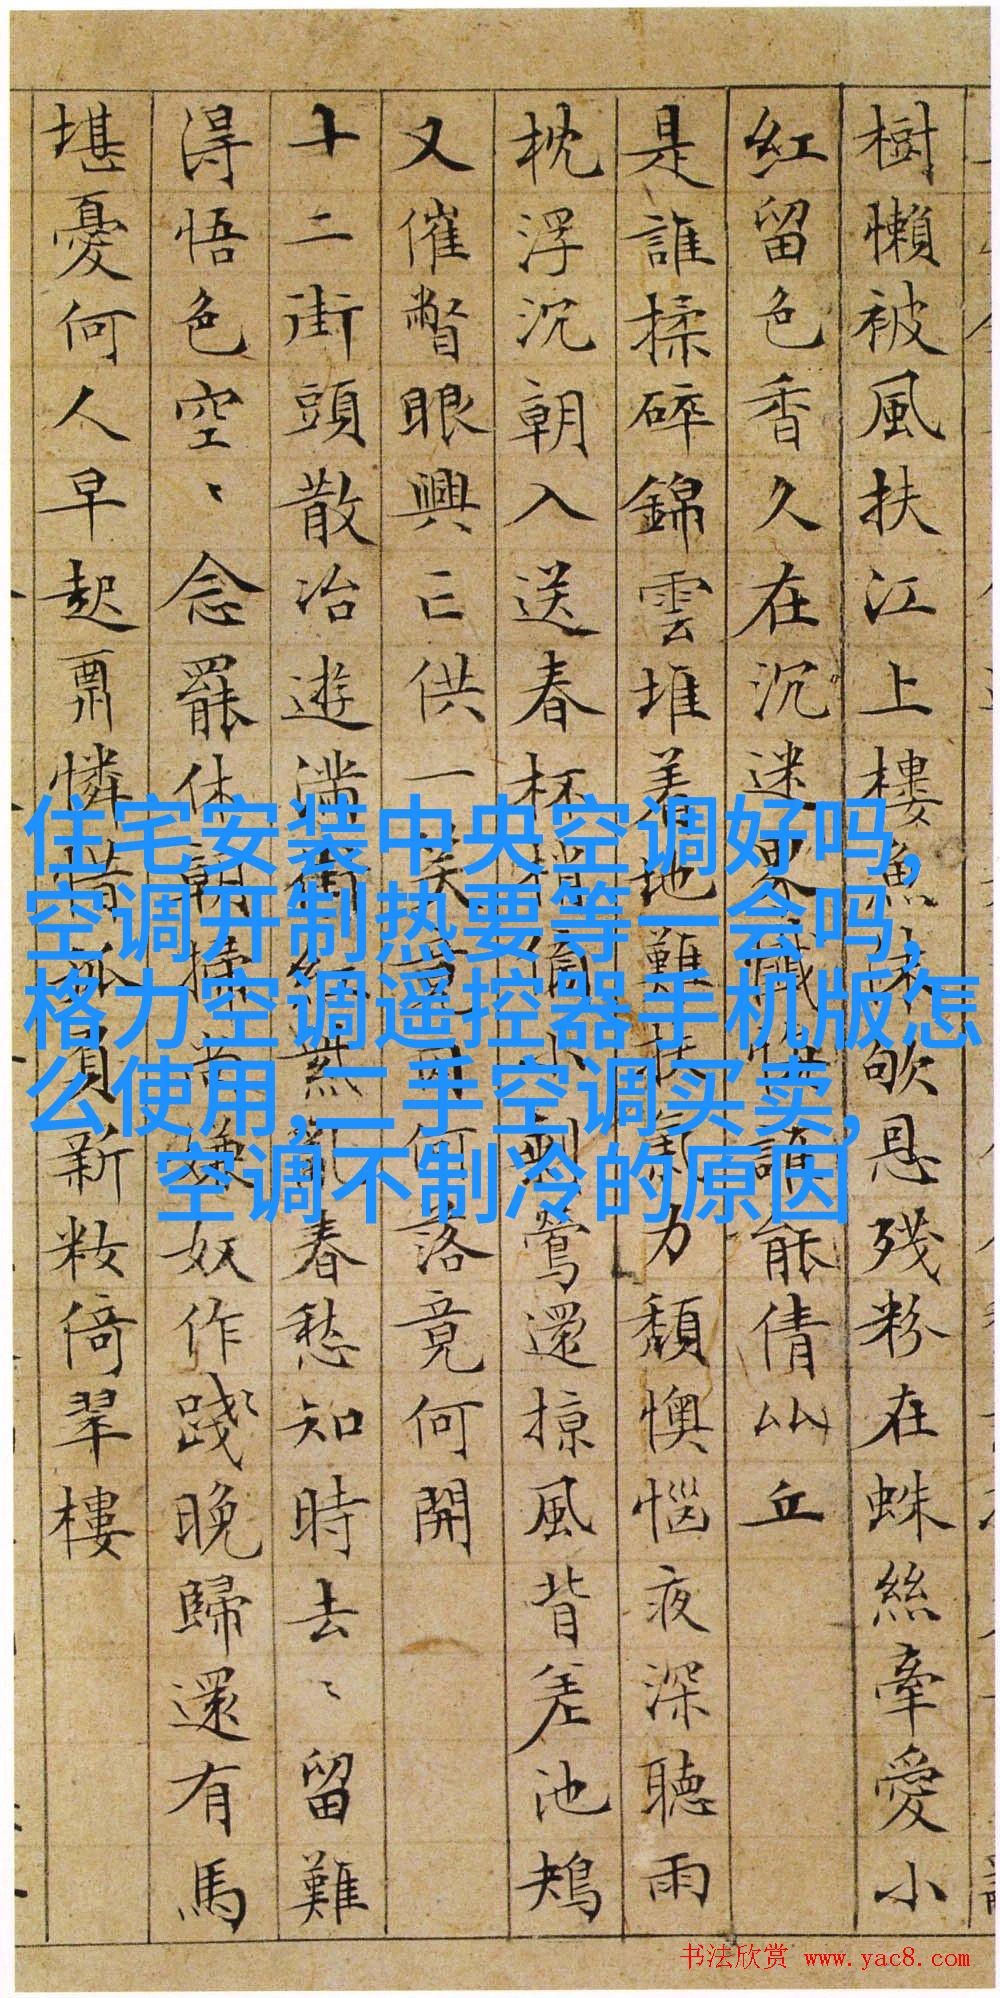 樹懶被風扶江上樓魚沫恩殘粉在蛛絲牽愛小
紅留色香久在沉迷界懺能倩比丘
是誰揉碎錦雲堆着地難扶氣力頹懊惱夜深聽雨
枕浮沉朝入送春杯梢小剩鶯還掠風背差池鴂
又催瞥眼興亡供一笑竟因何落竟何開
十二街頭散冶遊滿街紅紫亂春愁知時去、留難
得悟色空、念罷休朝掃尚嫌奴作踐晚歸還有馬
堪憂何人早起憐惜孤負新籹倚翠樓
住宅安装中央空调好吗,
空调开制热要等一会吗,
格力空调遥控器手机版怎
么使用,二手空调买卖,
空调不制冷的原因
书法欣赏 www.yac8.com